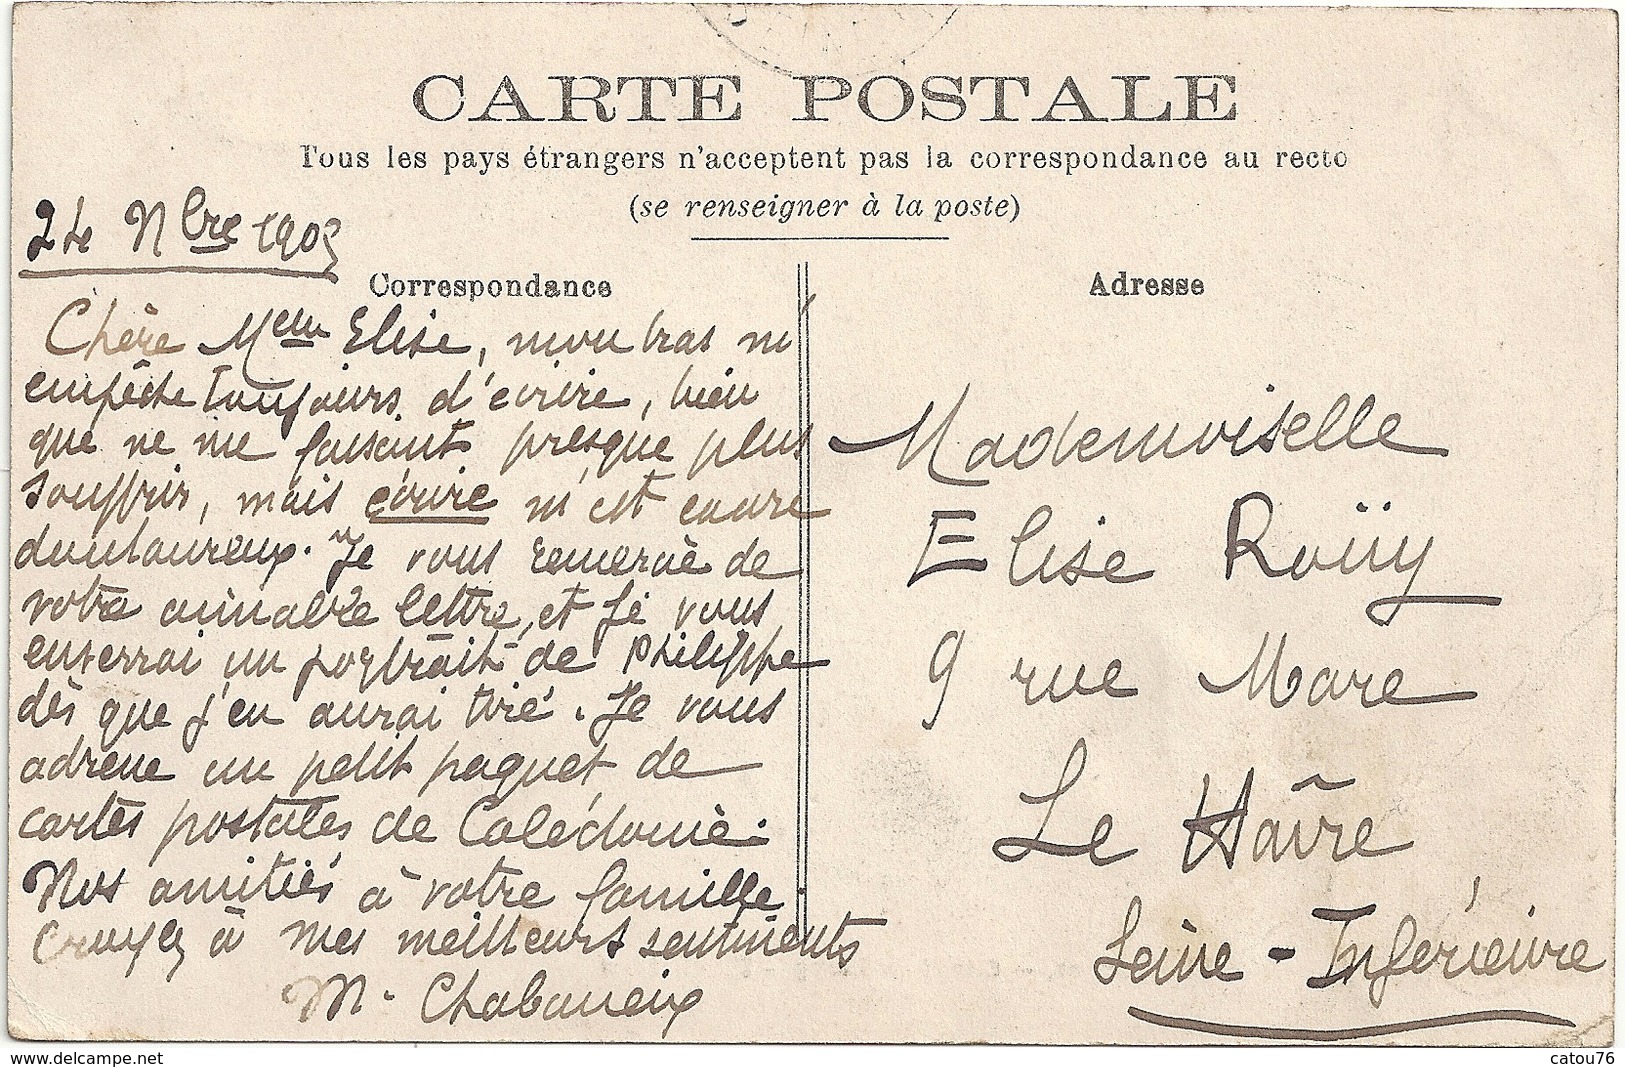 CARTE POSTALE
Tous les pays étrangers n'acceptent pas la correspondance au recto
(se renseigner à la poste)
24 Nbre 1905
Correspondance
Chère Melle Elise, mon bras m'
empêche toujours d'écrire, bien
que ne me faisant presque plus
souffrir, mais écrire m'est encore
douloureux. Je vous remercie de
votre aimable lettre, et je vous
enverrai un portrait de Philippe
dès que j'en aurai tiré. Je vous
adresse un petit paquet de
cartes postales de Calédonie.
Nos amitiés à votre famille.
Croyez à mes meilleurs sentiments
M. Chabaneix
Adresse
Mademoiselle
Elise Roüy
9 rue Mare
Le Hâvre
Seine-Inférieure
www.delcampe.net
catou76